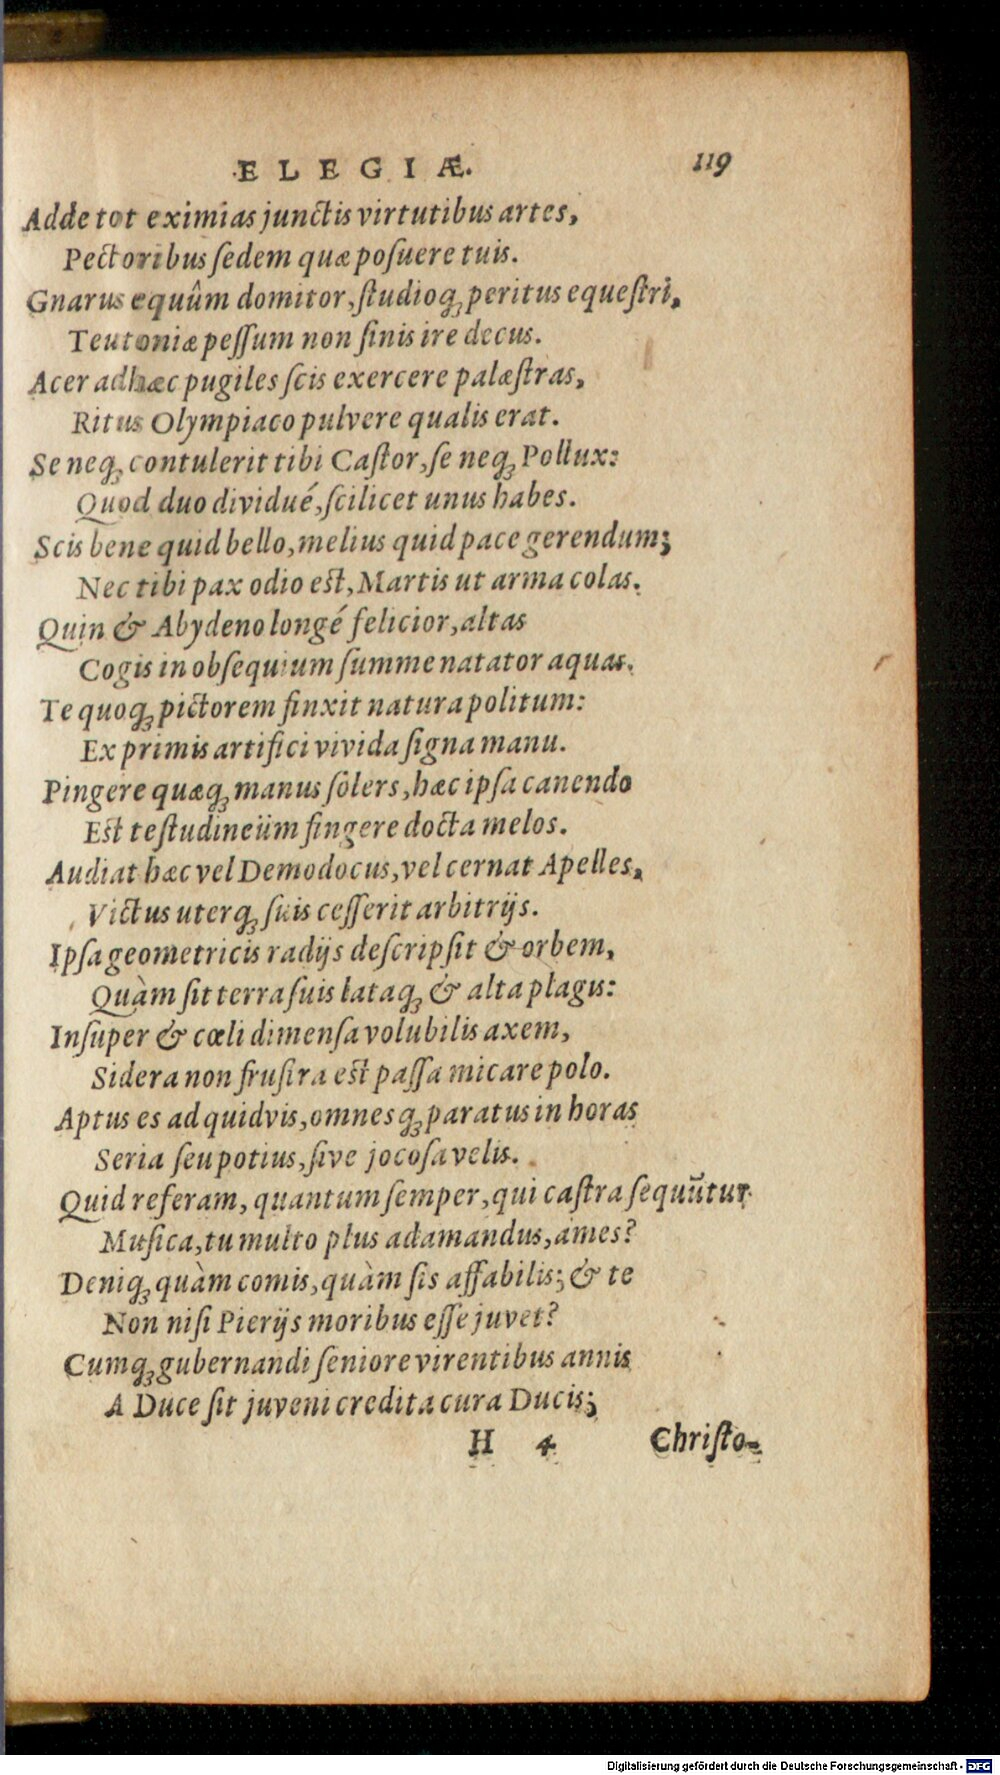 ELEGIÆ. 119
Adde tot eximias junctis virtutibus artes,
Pectoribus ſedem quæ poſuere tuis.
Gnarus equûm domitor, ſtudioq́ꝫ peritus equeſtri,
Teutoniæ peſſum non ſinis ire decus.
Acer adhæc pugiles ſcis exercere palæſtras,
Ritus Olympiaco pulvere qualis erat.
Se neqꝫ contulerit tibi Caſtor, ſe neqꝫ Pollux:
Quod duo dividué, ſcilicet unus habes.
Scis bene quid bello, melius quid pace gerendum;
Nec tibi pax odio est, Martis ut arma colas.
Quin & Abydeno longé felicior, altas
Cogis in obſequium ſumme natator aquas.
Te quoqꝫ pictorem finxit natura politum:
Ex primis artifici vivida ſigna manu.
Pingere quæqꝫ manus ſolers, hæc ipſa canendo
Est teſtudineüm fingere docta melos.
Audiat hæc vel Demodocus, vel cernat Apelles,
Victus uterqꝫ ſuis ceſſerit arbitrijs.
Ipſa geometricis radijs deſcripſit & orbem,
Quàm ſit terra ſuis lataqꝫ & alta plagis:
Inſuper & cœli dimenſa volubilis axem,
Sidera non fruſtra est paſſa micare polo.
Aptus es ad quidvis, omnesqꝫ paratus in horas
Seria ſeu potius, ſive jocoſa velis.
Quid referam, quantum ſemper, qui caſtra ſequūtur
Muſica, tu multo plus adamandus, ames?
Deniqꝫ quàm comis, quàm ſis affabilis; & te
Non niſi Pierijs moribus eſſe juvet?
Cumqꝫ gubernandi ſeniore virentibus annis
A Duce ſit juveni credita cura Ducis;
H 4 Chriſto-
Digitalisierung gefördert durch die Deutsche Forschungsgemeinschaft - DFG